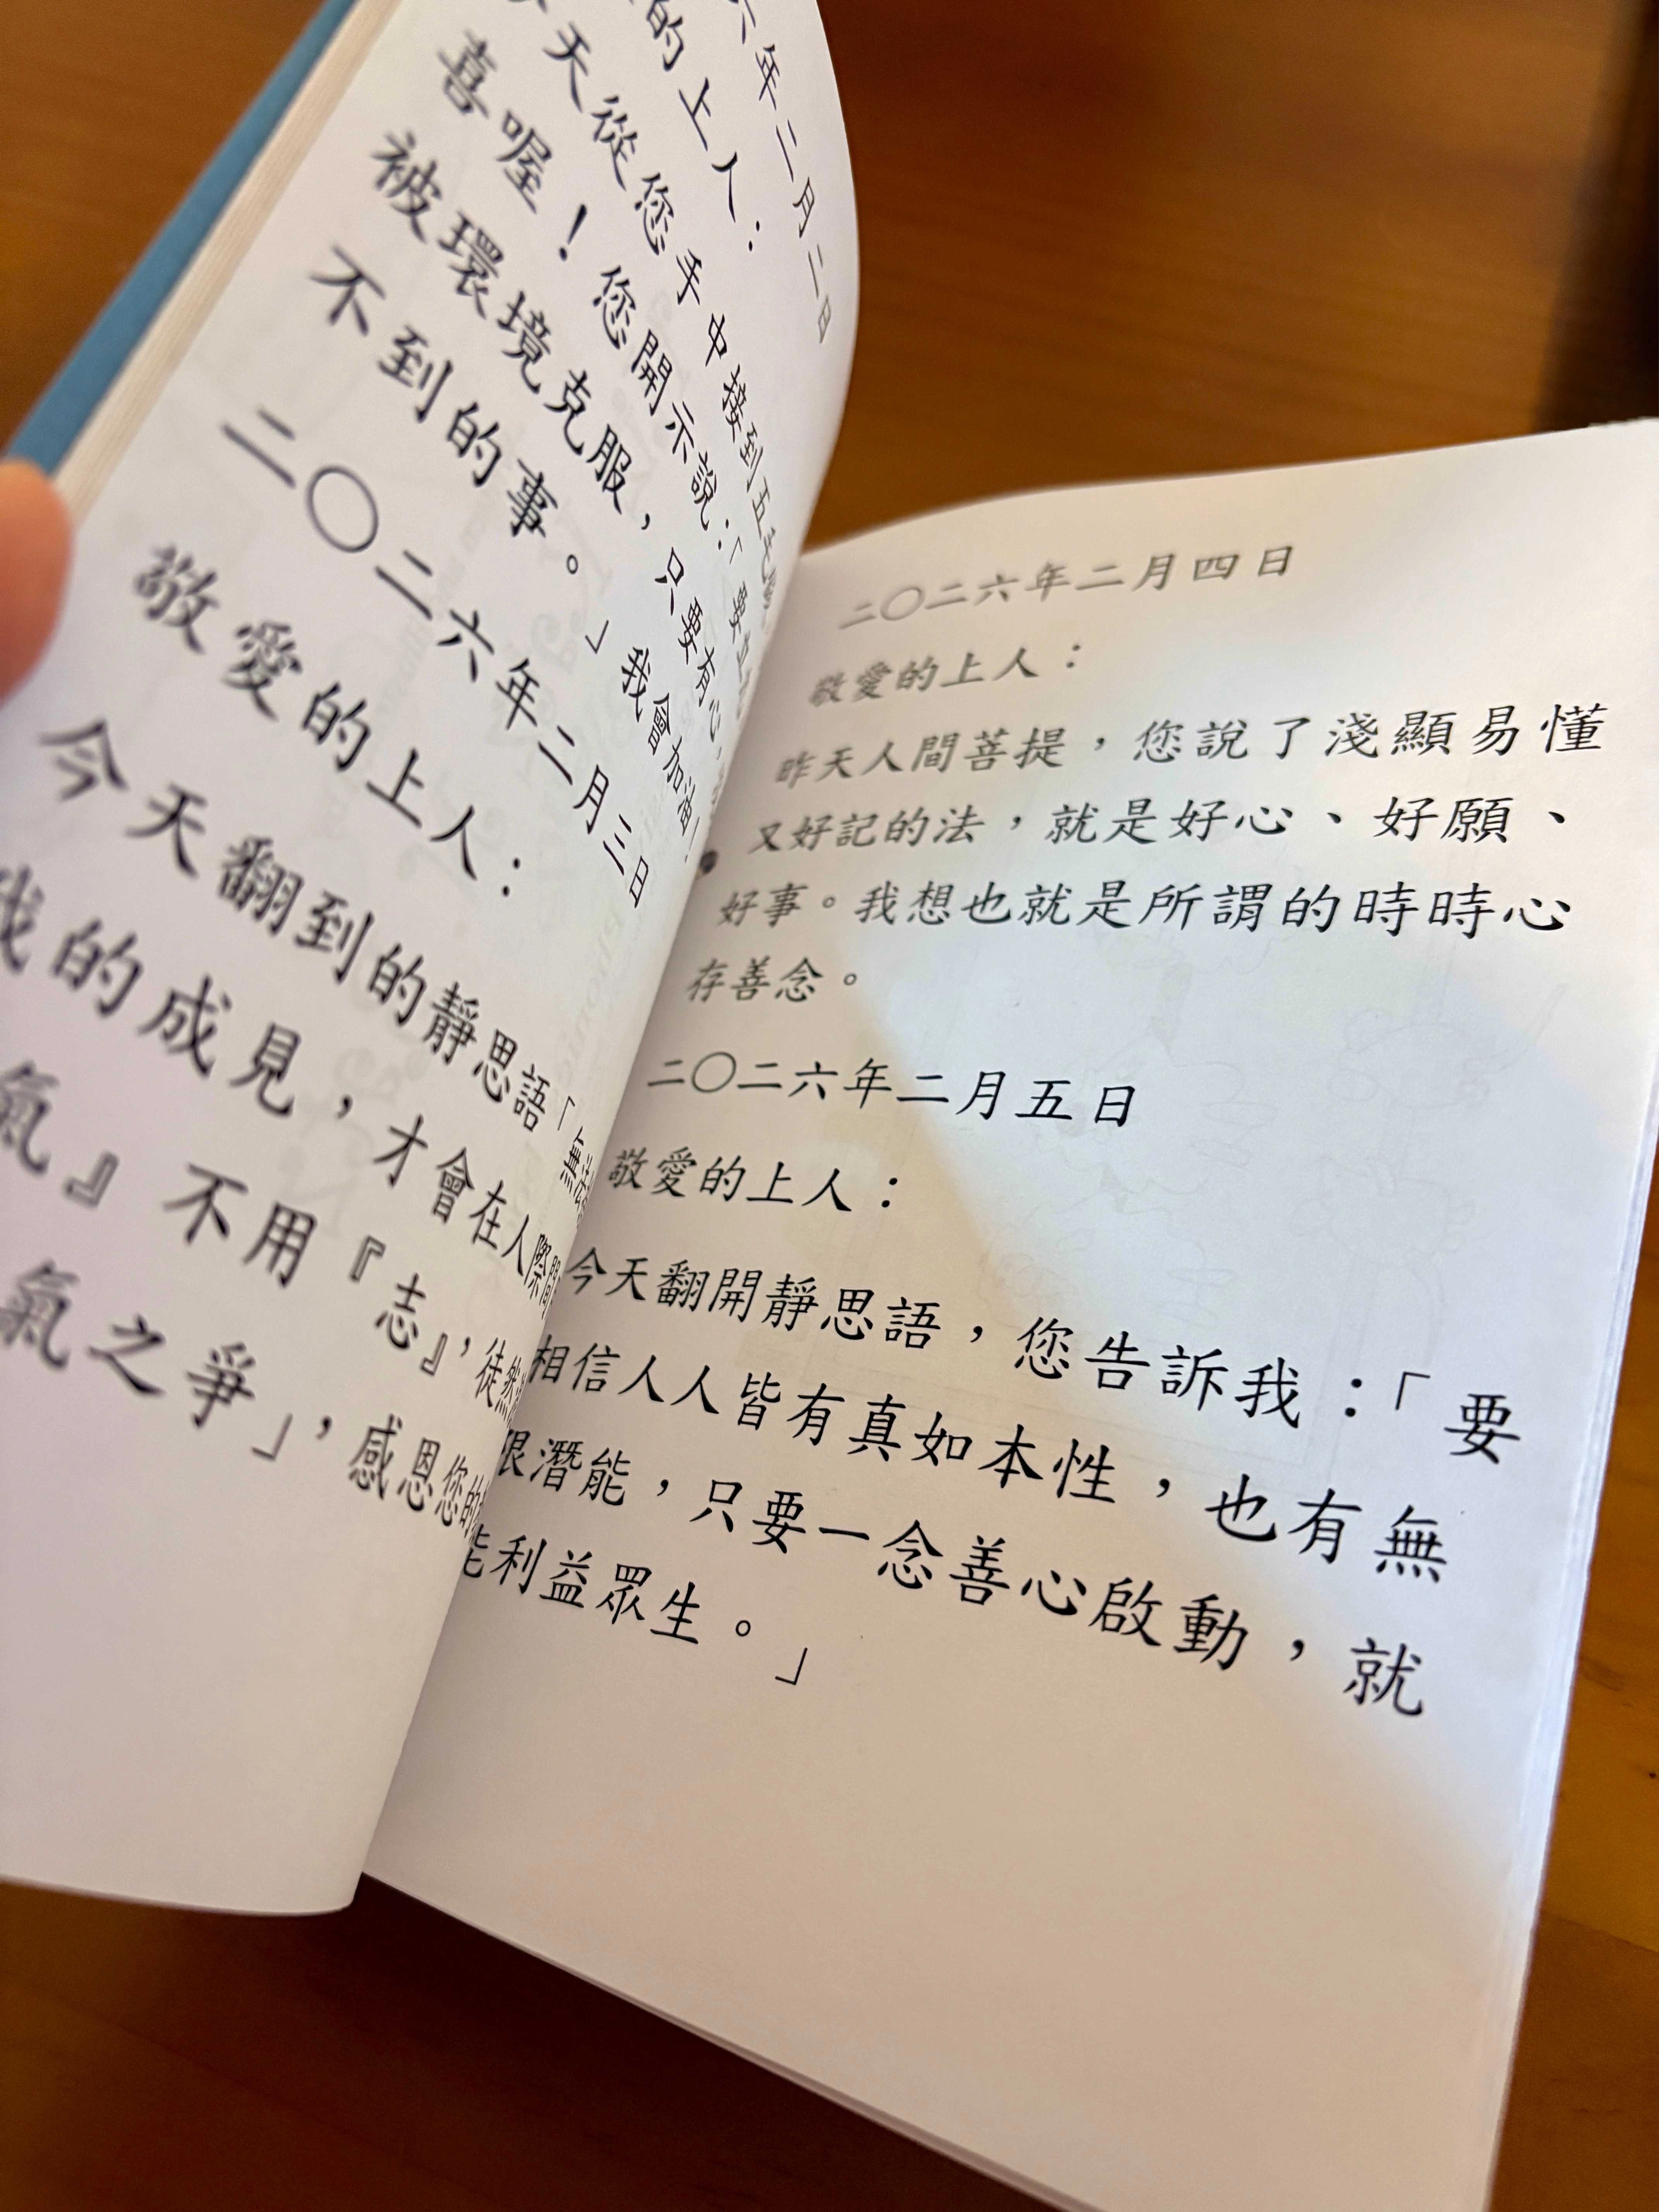 六年二月二日
的上人：
天從您手中接到五
喜喔！您開示說：「要
被環境克服，只要有心，
不到的事。」我會加油！
二〇二六年二月三日
敬愛的上人：
今天翻到的靜思語「無法
我的成見，才會在人際間
氣』不用『志』，徒然
氣之爭」，感恩您的
二〇二六年二月四日
敬愛的上人：
昨天人間菩提，您說了淺顯易懂
又好記的法，就是好心、好願、
好事。我想也就是所謂的時時心
存善念。
二〇二六年二月五日
敬愛的上人：
今天翻開靜思語，您告訴我：「要
相信人人皆有真如本性，也有無
限潛能，只要一念善心啟動，就
能利益眾生。」